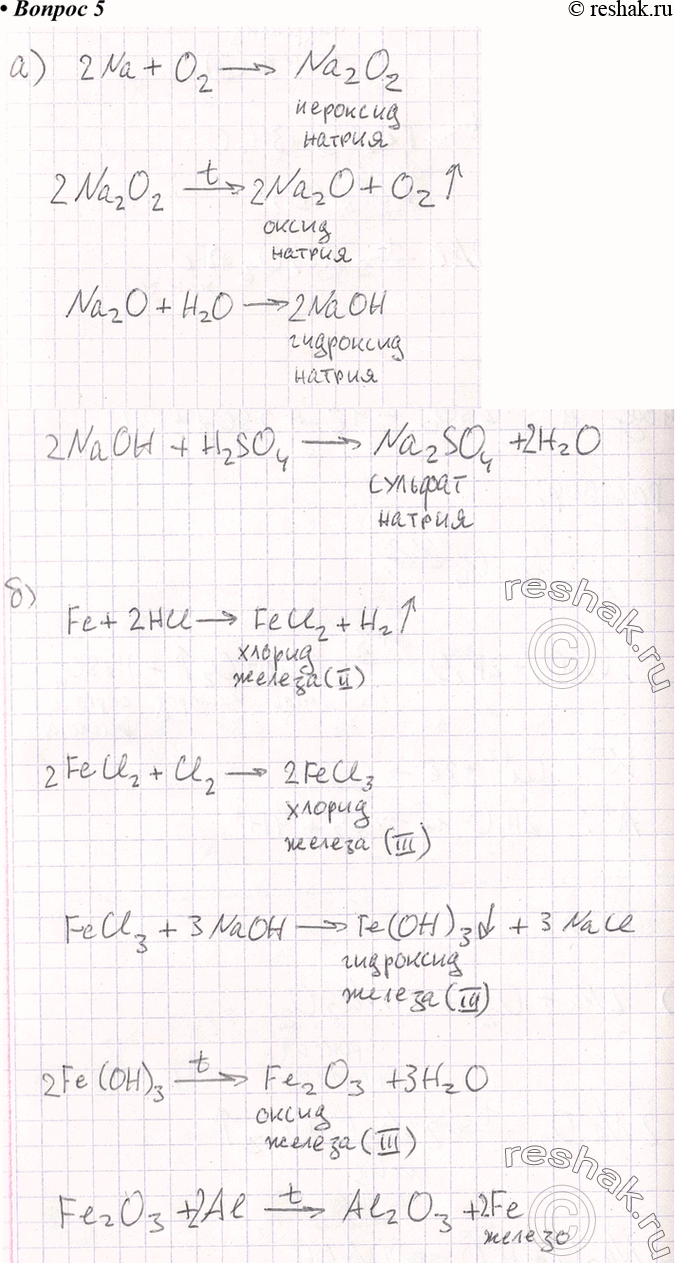 • Вопрос 5
© reshak.ru
а) 2Na + O₂ → Na₂O₂
пероксид
натрия
2Na₂O₂ t→ 2Na₂O + O₂↑
оксид
натрия
Na₂O + H₂O → 2NaOH
гидроксид
натрия
2NaOH + H₂SO₄ → Na₂SO₄ + 2H₂O
сульфат
натрия
б)
Fe + 2HCl → FeCl₂ + H₂↑
хлорид
железа (II)
reshak.ru
©
2FeCl₂ + Cl₂ → 2FeCl₃
хлорид
железа (III)
FeCl₃ + 3NaOH → Fe(OH)₃↓ + 3NaCl
гидроксид
железа (III)
2Fe(OH)₃ t→ Fe₂O₃ + 3H₂O
оксид
железа (III)
Fe₂O₃ + 2Al t→ Al₂O₃ + 2Fe
железо
reshak.ru
©